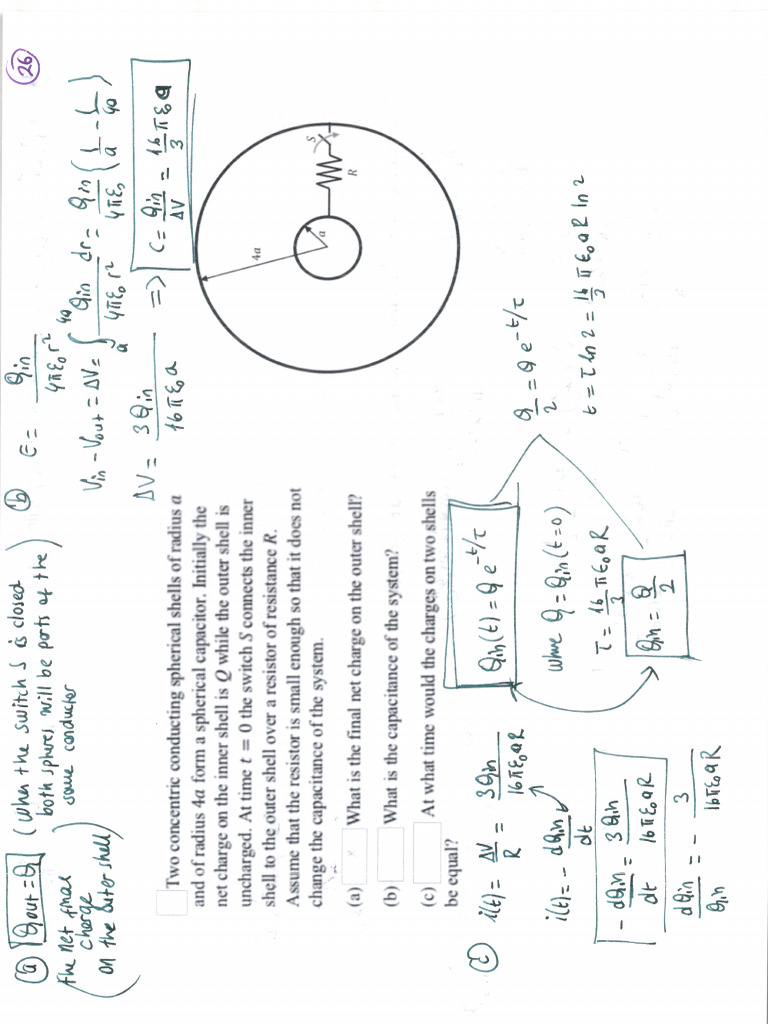 26
(a) Qout = Q (when the switch S is closed
both sphres will be parts of the
same conductor)
(the net final
charge
on the outer shell)
(b) E = Qin / 4πε₀r²
Vin - Vout = ΔV = ∫ₐ⁴ᵃ Qin dr / 4πε₀ r² = Qin / 4πε₀ (1/a - 1/4a)
ΔV = 3Qin / 16πε₀a => C = Qin / ΔV = 16/3 πε₀a
Two concentric conducting spherical shells of radius a
and of radius 4a form a spherical capacitor. Initially the
net charge on the inner shell is Q while the outer shell is
uncharged. At time t = 0 the switch S connects the inner
shell to the outer shell over a resistor of resistance R.
Assume that the resistor is small enough so that it does not
change the capacitance of the system.
(a) What is the final net charge on the outer shell?
(b) What is the capacitance of the system?
(c) At what time would the charges on two shells
be equal?
4a
a
R
S
(c) i(t) = ΔV / R = 3Qin / 16πε₀aR
i(t) = - dQin / dt
- dQin / dt = 3Qin / 16πε₀aR
dQin / Qin = - 3 / 16πε₀aR
Qin(t) = Q e^-t/τ
where Q = Qin(t=0)
τ = 16/3 πε₀aR
Qin = Q/2
Q/2 = Q e^-t/τ
t = τ ln 2 = 16/3 πε₀aR ln 2